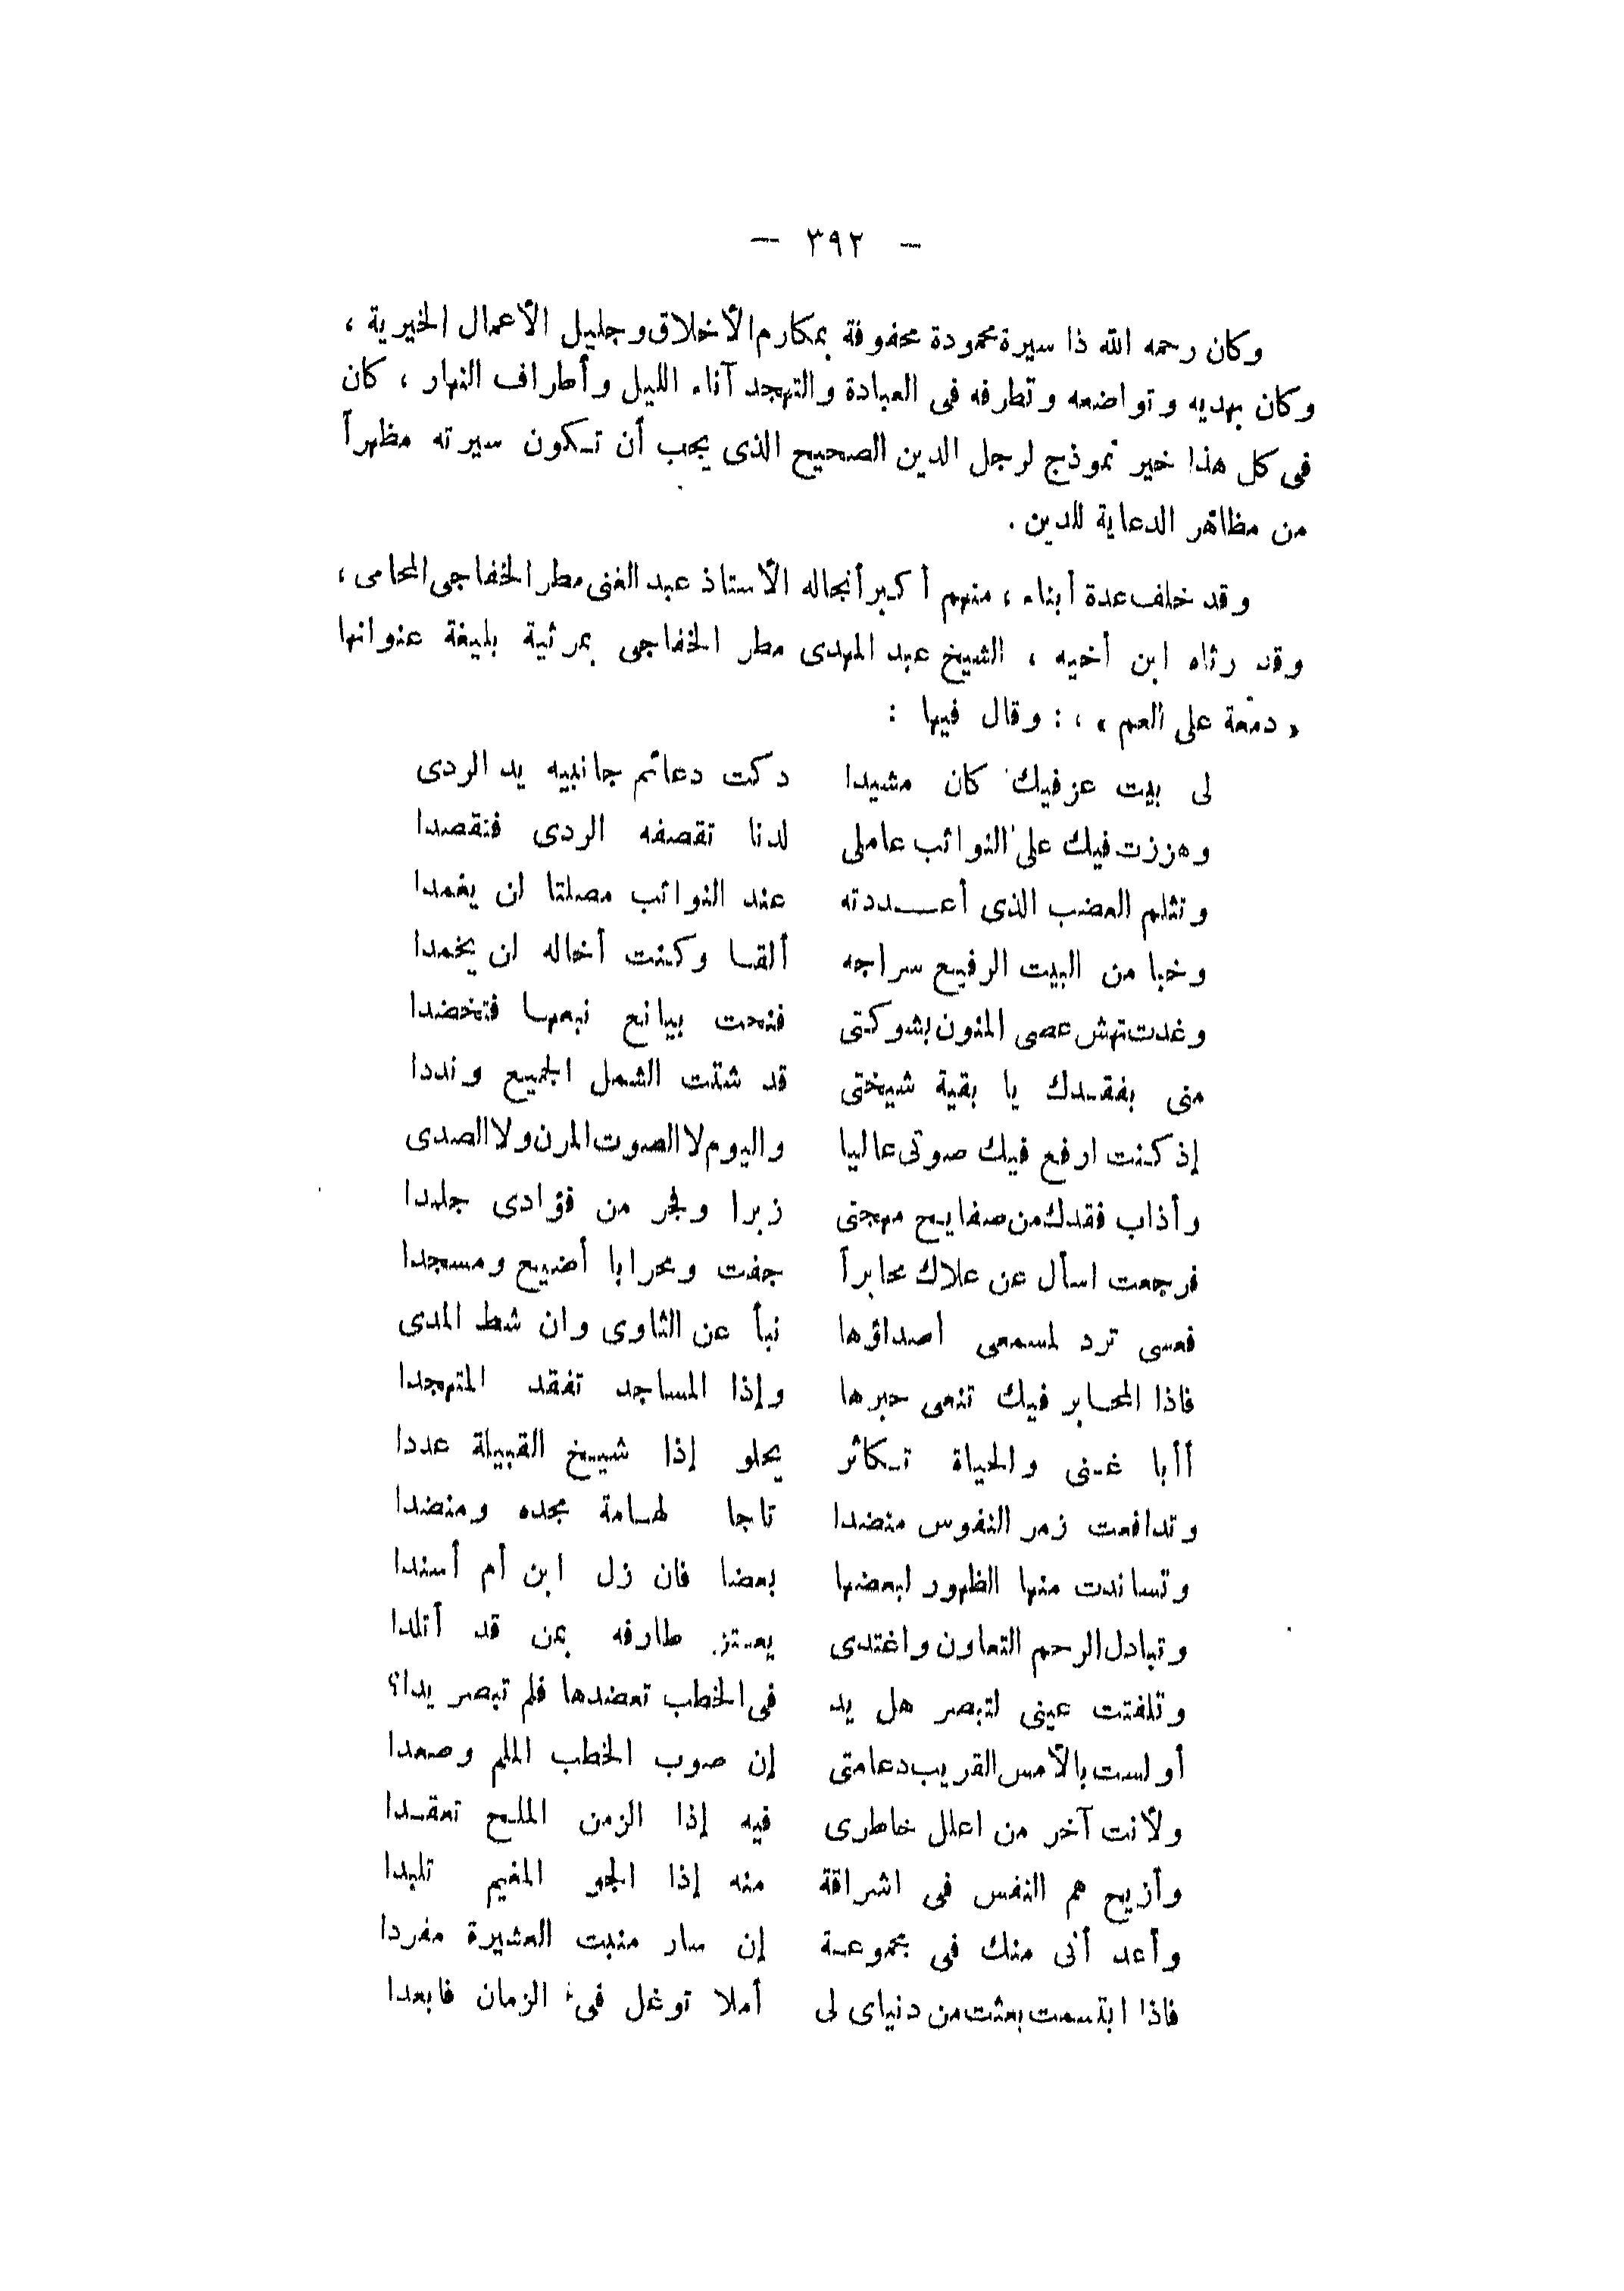 — ٣٩٢ —
وكان رحمه الله ذا سيرة محمودة محفوفة بمكارم الأخلاق وجليل الأعمال الخيرية ،
وكان بهديه وتواضعه وتطرفه فى العبادة والتهجد آناء الليل وأطراف النهار ، كان
فى كل هذا خير نموذج لرجل الدين الصحيح الذى يجب أن تكون سيرته مظهراً
من مظاهر الدعاية للدين .
وقد خلف عدة أبناء ، منهم أكبر أنجاله الأستاذ عبد الغنى مطر الخفاجى المحامى ،
وقد رثاه ابن أخيه ، الشيخ عبد المهدى مطر الخفاجى بمرثية بليغة عنوانها
« دمعة على العم » ، : وقال فيها :
لى بيت عز فيك كان مشيدا دكت دعائم جانبيه يد الردى
وهززت فيك على النوائب عاملى لدنا تقصفه الردى فتقصدا
وتثلم العضب الذى أعددته عند النوائب مصلتا لن يغمدا
وخبا من البيت الرفيع سراجه ألقا وكنت أخاله لن يخمدا
وغدت تهش عصى المنون بشوكتى فنحت بيانع نبعها فتخضدا
منى بفقدك يا بقية شيختى قد شتت الشمل الجميع ونددا
إذ كنت ارفع فيك صوتى عاليا واليوم لا الصوت المرن ولا الصدى
وأذاب فقدك من صفايح مهجتى زبرا وفجر من فؤادى جلمدا
فرجعت اسأل عن علاك محابراً جفت ومحرابا أضيع ومسجدا
فعسى ترد لمسمعى أصداؤها نبأ عن الثاوى وان شط المدى
فاذا المحابر فيك تنعى حبرها وإذا المساجد تفقد المتهجدا
أأبا غنى والحياة تكاثر يحلو إذا شيخ القبيلة عددا
وتدافعت زمر النفوس منضدا تاجا لهامة مجده ومنضدا
وتساندت منها الظهور لبعضها بعضا فان زل ابن أم أسندا
وتبادل الرحم التعاون واغتدى يعتز طارفه بمن قد أتلدا
وتلفتت عينى لتبصر هل يد فى الخطب تعضدها فلم تبصر يدا؟
أولست بالأمس القريب دعامتى إن صوب الخطب الملم وصعدا
ولأنت آخر من اعلل خاطرى فيه إذا الزمن الملح تعقدا
وأزيح هم النفس فى اشراقة منه إذا الجو المغيم تلبدا
وأعد أنى منك فى مجموعة إن سار منبت العشيرة مفردا
فاذا ابتسمت بعثت من دنياى لى أملا توغل فى الزمان فابعدا